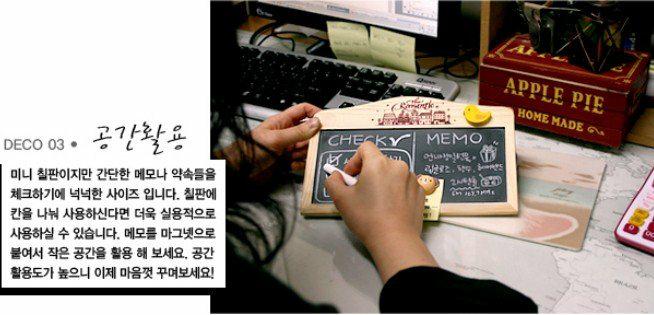 DECO 03 • 공간활용
미니 칠판이지만 간단한 메모나 약속들을
체크하기에 넉넉한 사이즈 입니다. 칠판에
칸을 나눠 사용하신다면 더욱 실용적으로
사용하실 수 있습니다. 메모를 마그넷으로
붙여서 작은 공간을 활용 해 보세요. 공간
활용도가 높으니 이제 마음껏 꾸며보세요!
Romantic
CHECK
MEMO
APPLE PIE
HOME MADE